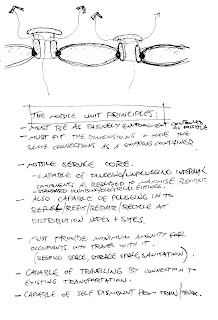 THE MOBILE UNIT PRINCIPLES:
- MUST BE AS PASSIVELY ENVIRONMENT CONTROLLED AS POSSIBLE
- MUST FIT THE DIMENSIONS & HAVE THE
SAME CONNECTIONS AS A SHIPPING CONTAINER
- MOBILE SERVICE CORE.
- CAPABLE OF PLUGGING/UNPLUGGING INTERNAL
COMPONENTS AS REQUIRED TO MAXIMISE
STANDARD
- ALSO CAPABLE OF PLUGGING IN TO
REFUEL/REFIT/REPAIR/RECYCLE AT
DISTRIBUTION NODES + SITES.
- MUST PROVIDE MINIMUM AMENITY FOR
OCCUPANTS WHO TRAVEL WITH IT.
(SLEEPING SPACE, STORAGE SPACE, SANITATION).
- CAPABLE OF TRAVELLING BY CONNECTION TO
EXISTING TRANSPORTATION.
- CAPABLE OF SELF DISMOUNT FROM TRAIN/TRUCK.